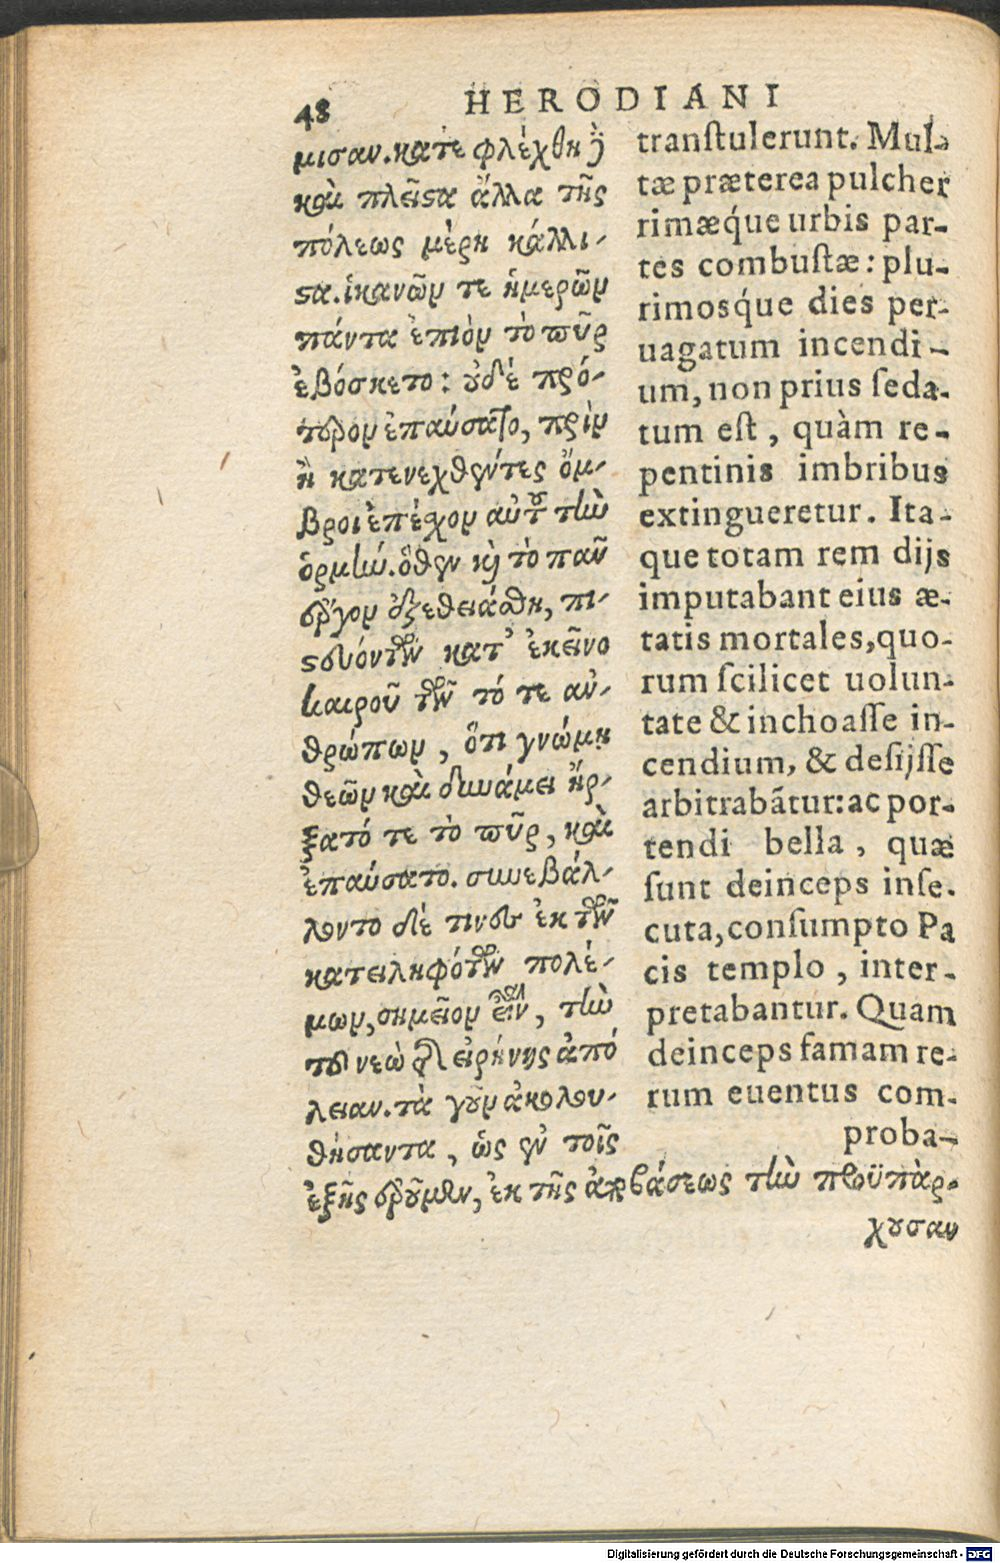 48 HERODIANI
μισαν. κατεφλέχθη ϳ
καὶ πλεῖϛα ἄλλα τῆς
πόλεως μέρη κάλλι-
ϛα. ἱκανῶν τε ἡμερῶν
πάντα ἐπιὸν τὸ πῦρ
ἐβόσκετο: οὐδὲ πρό-
τερον ἐπαύσατο, πρὶν
ἢ κατενεχθέντες ὄμ-
βροι ἐπέχον αὐτοῦ τὴν
ὁρμήν. ὅθεν κὶ τὸ πᾶν
ἔργον ἐξεθειάσθη, πι-
ϛευόντων κατ' ἐκεῖνο
καιροῦ τῶν τό τε ἀν-
θρώπων, ὅτι γνώμῃ
θεῶν καὶ δυνάμει ἤρ-
ξατό τε τὸ πῦρ, καὶ
ἐπαύσατο. συνεβάλ-
λοντο δέ τινες ἐκ τῶν
κατειληφότων πολέ-
μων, σημεῖον εἶναι, τὴν
τοῦ νεὼ τῆς εἰρήνης ἀπό
λειαν. τὰ γοῦν ἀκολου-
θήσαντα, ὡς ἐν τοῖς
ἑξῆς ἐροῦμεν, ἐκ τῆς ἀποβάσεως τὴν προϋπάρ-
χουσαν
tranſtulerunt. Mul-
tæ præterea pulcher
rimæq́ue urbis par-
tes combuſtæ: plu-
rimosq́ue dies per-
uagatum incendi-
um, non prius ſeda-
tum eſt, quàm re-
pentinis imbribus
extingueretur. Ita-
que totam rem dijs
imputabant eius æ-
tatis mortales, quo-
rum ſcilicet uolun-
tate & inchoaſſe in-
cendium, & deſijſſe
arbitrabãtur: ac por-
tendi bella, quæ
ſunt deinceps inſe-
cuta, conſumpto Pa
cis templo, inter-
pretabantur. Quam
deinceps famam re-
rum euentus com-
proba-
Digitalisierung gefördert durch die Deutsche Forschungsgemeinschaft - DFG